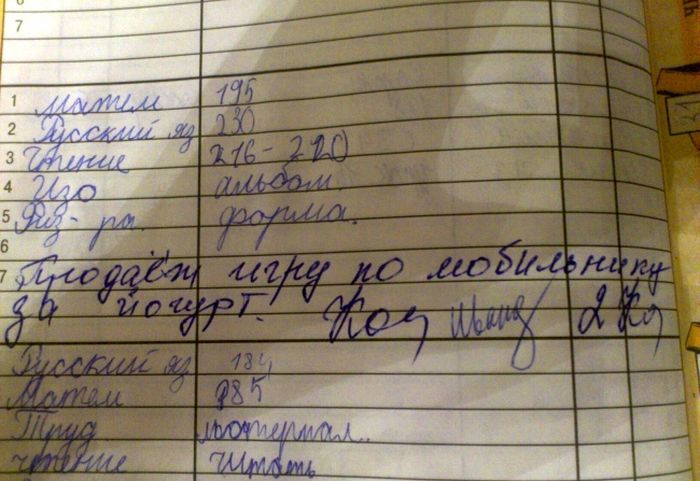 6
7
1 матем 195
2 Русский яз 230
3 Чтение 216-220
4 Изо альбом.
5 Физ-ра. форма.
6
7 Продаёж игру по мобильнику
за йогурт. 2
Русский яз 184
Матем 185
Труд материал..
чтение читать